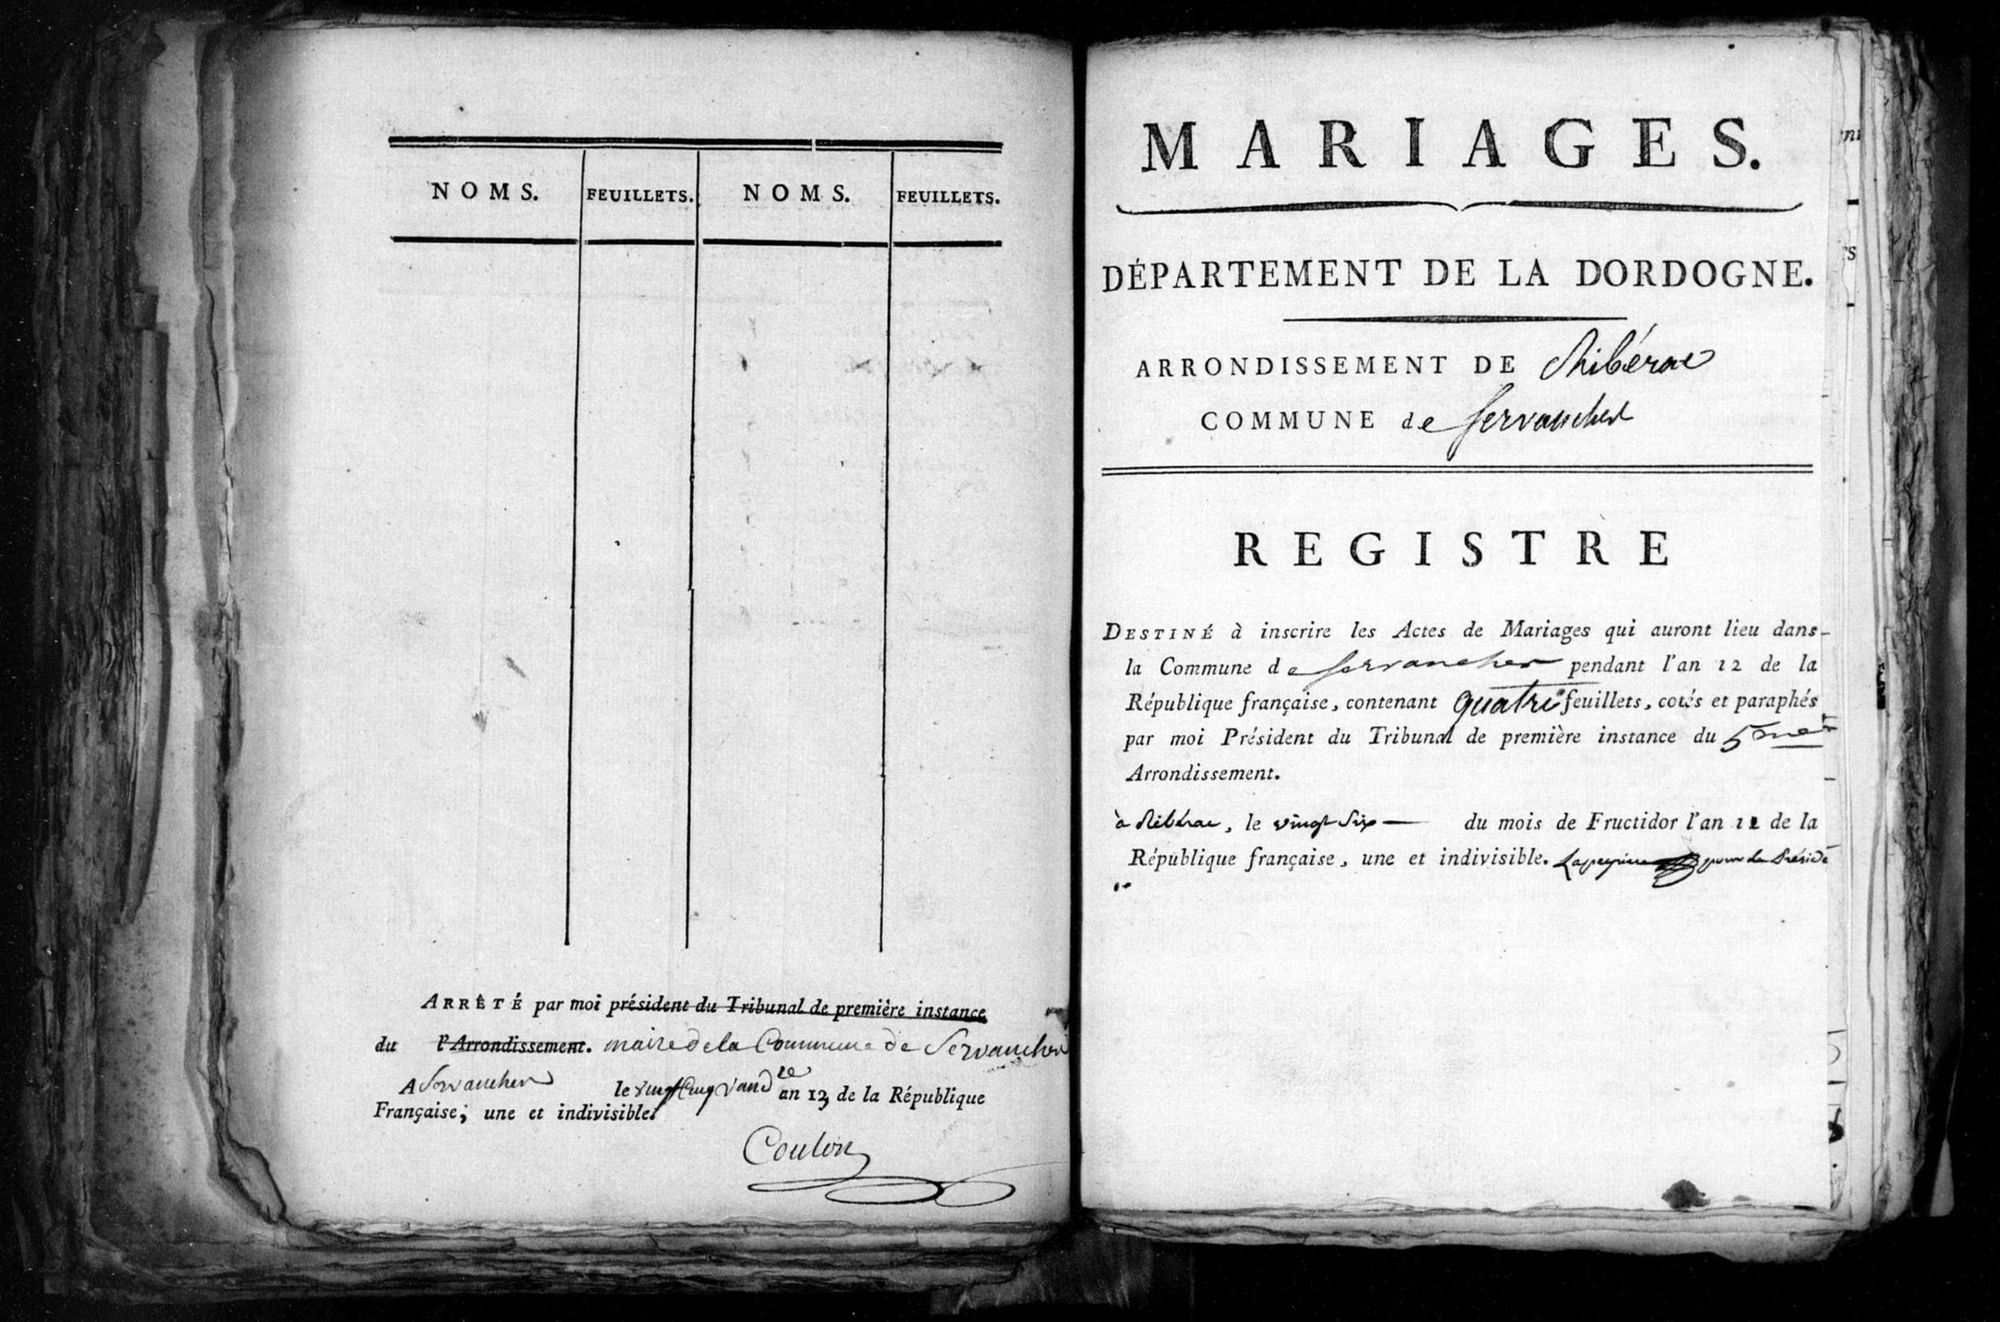 NOMS. FEUILLETS. NOMS. FEUILLETS.
ARRÊTÉ par moi président du Tribunal de première instance
du l'Arrondissement. maire de la Commune de Servanches
A Servanches le vingt cinq vand.re an 13, de la République
Française, une et indivisible.
Coulon
MARIAGES.
DÉPARTEMENT DE LA DORDOGNE.
ARRONDISSEMENT DE Ribérac
COMMUNE de Servanches
REGISTRE
DESTINÉ à inscrire les Actes de Mariages qui auront lieu dans
la Commune de Servanches pendant l'an 12 de la
République française, contenant quatre feuillets, cotés et paraphés
par moi Président du Tribunal de première instance du 5me
Arrondissement.
à Ribérac, le vingt six du mois de Fructidor l'an 11 de la
République française, une et indivisible. pour le Préside